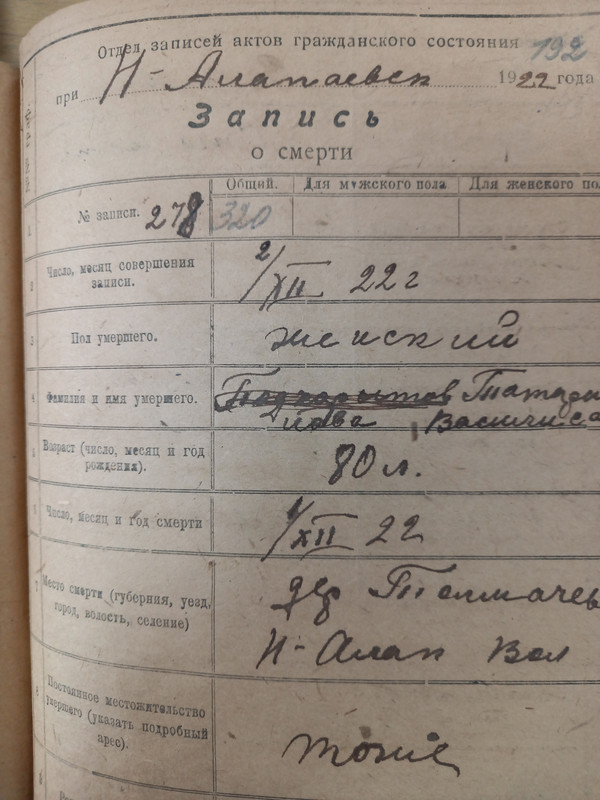 192
Отдел записей актов гражданского состояния
при Н-Алапаевск 1922 года
Запись
о смерти
Общий. Для мужского пола Для женского пол
1 № записи. 278 320
2 Число, месяц совершения
записи.
2/XII 22 г
3 Пол умершего. женский
4 Фамилия и имя умершего.
нова
5 Возраст (число, месяц и год
рождения).
80 л.
6 Число, месяц и год смерти 1/XII 22
7 Место смерти (губерния, уезд,
город, волость, селение)
дер Толмачев
Н-Алап Вол
8 Постоянное местожительство
умершего (указать подробный
адрес).
тоже